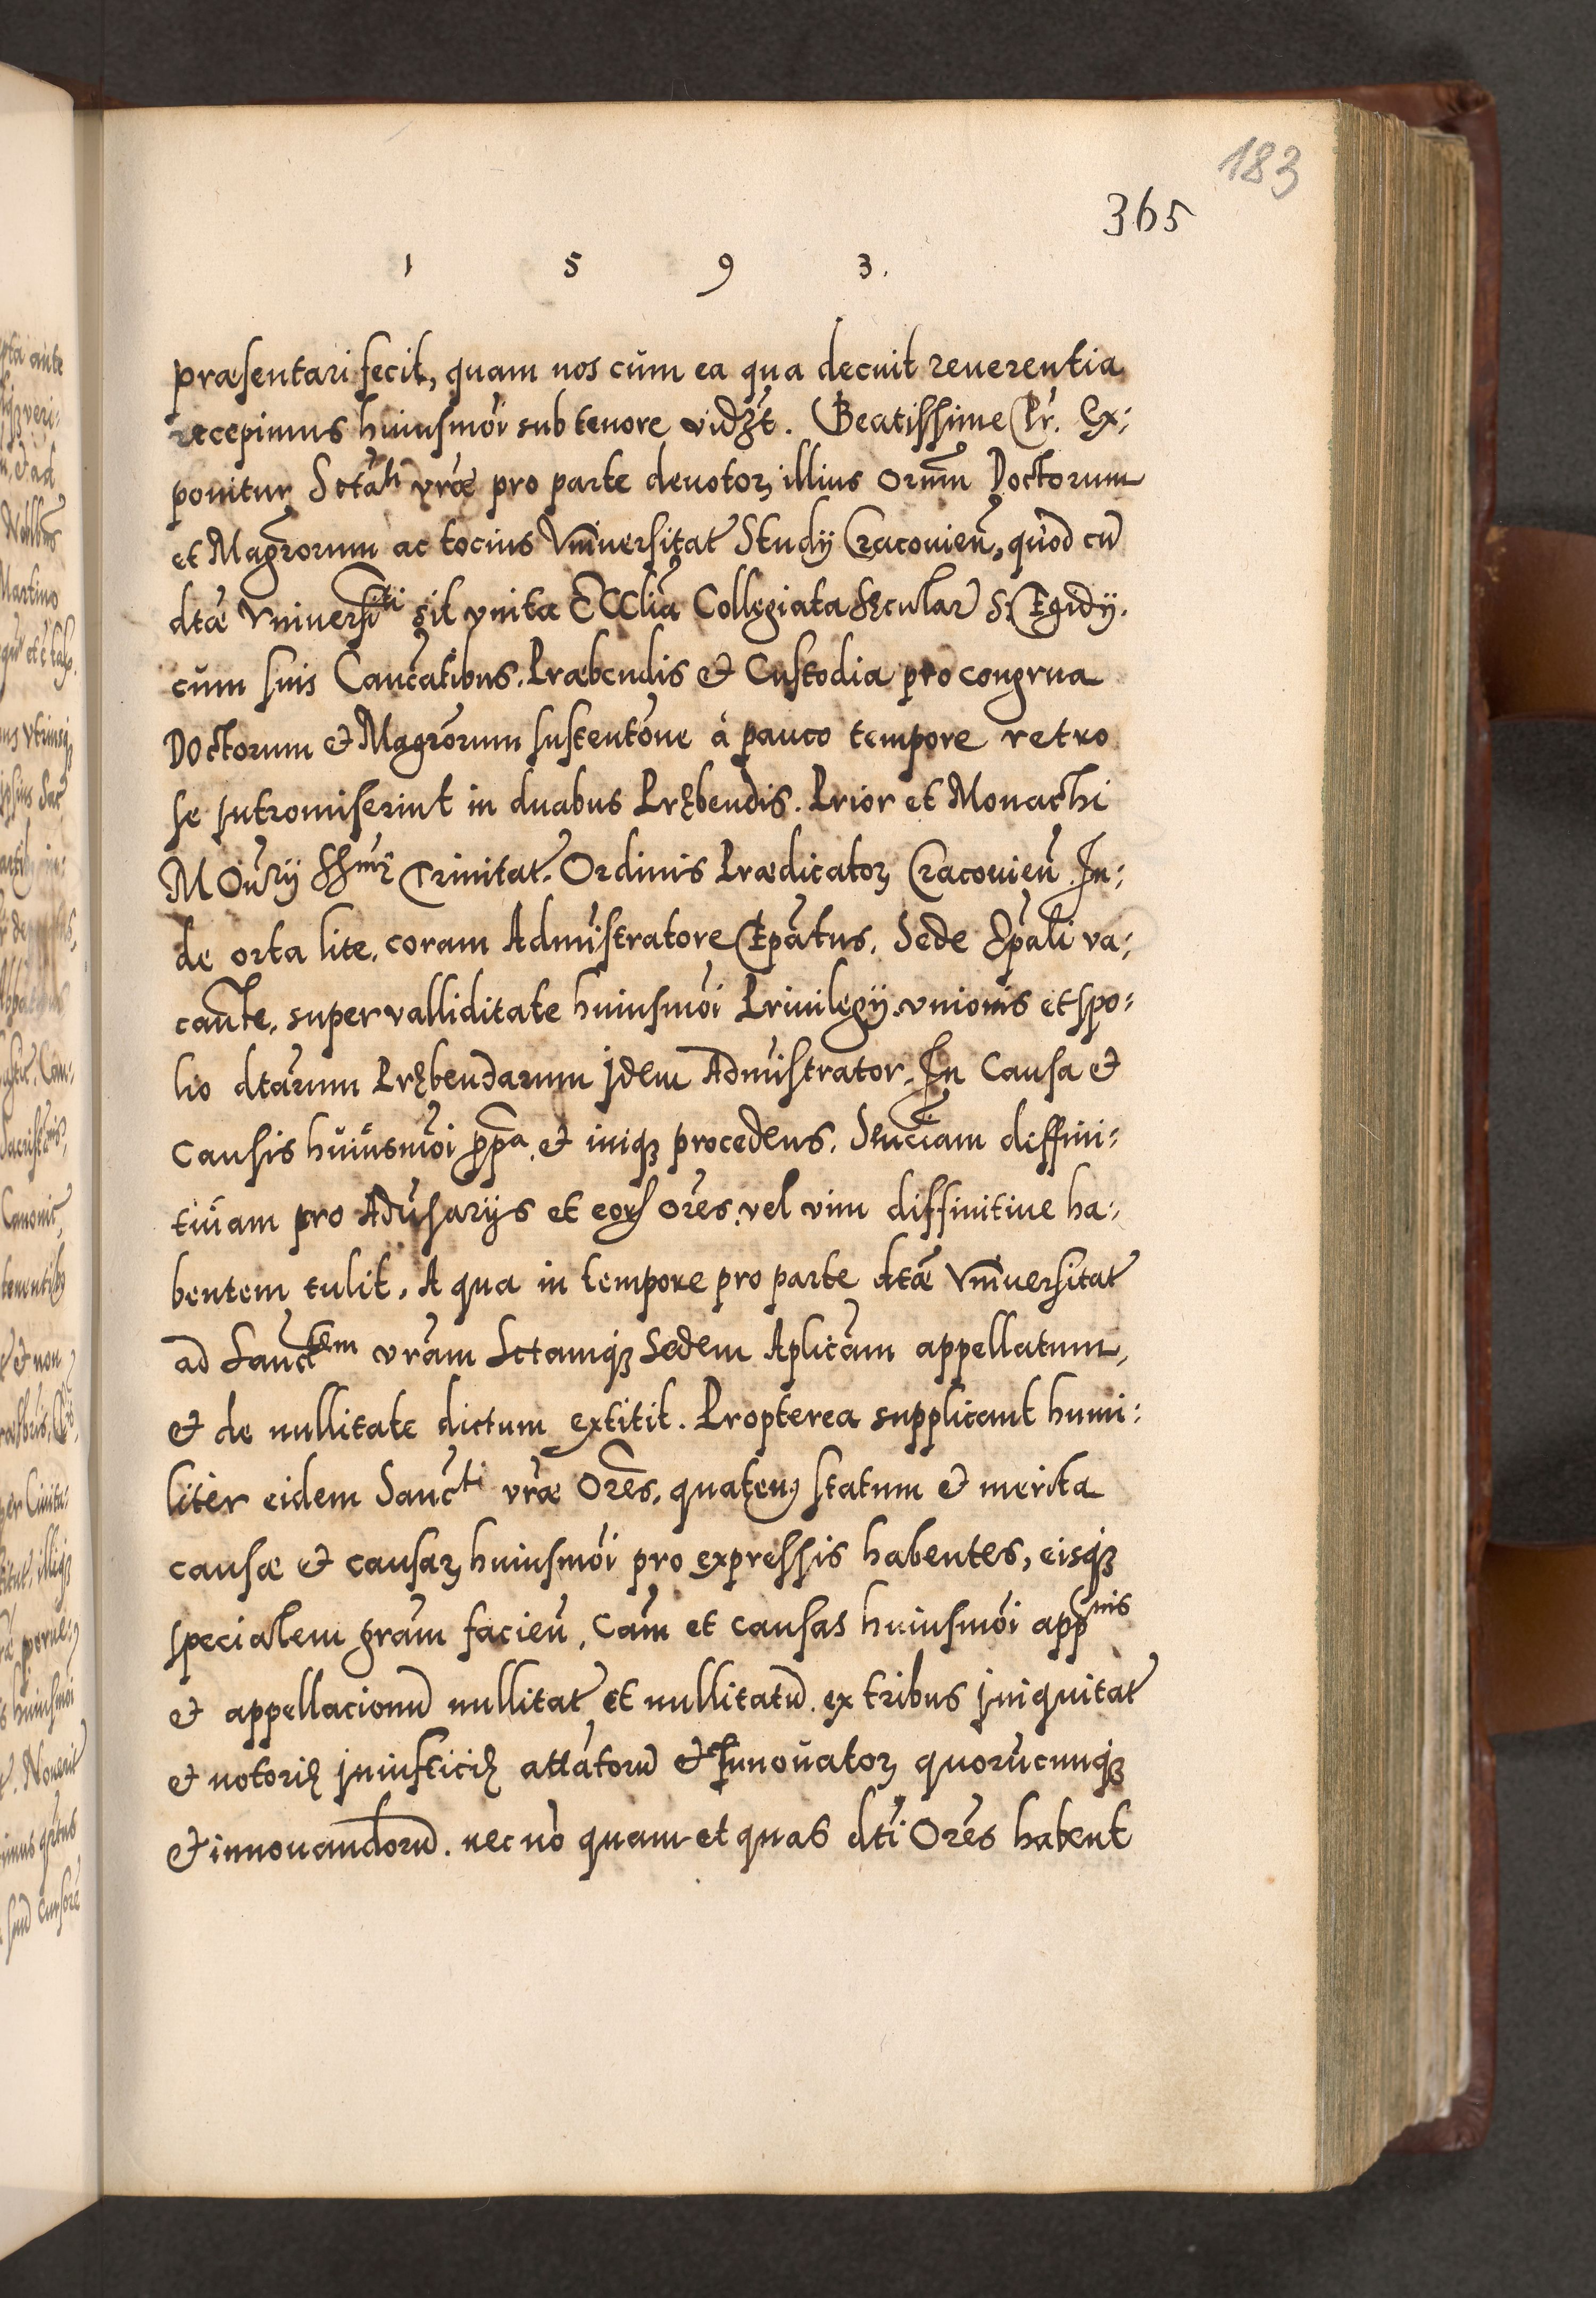 183
365
1 5 9 3.
præsentari fecit, quam nos cùm ea qua decuit reuerentia
recepimus huiusmoi sub tenore vidzt. Beatissime Pr. Ex:
ponitur Sctāti vræ pro parte deuotoꝝ illius Orm̄m Doctorum
et Magrorum ac tocius Vniuersitat Studij Cracouien̄, quòd cū
dtæ Vniuersiti sit vnita Ecclīa Collegiata Sęcular S. Egidij.
cùm suis Canc̄atibus. Præbendis & Custodia pro congrua
Doctorum & Magrorum sustentōne à pauco tempore retro
se jntromiserint in duabus Prębendis. Prior et Monachi
Mon̄rij SSmę Trinitat. Ordinis Prædicatoꝝ Cracouien̄. In:
de orta lite. coram Adm̄istratore Ep̄atus. Sede Ep̄ali va:
cante. super valliditate huiusmōi Priuilegij vnionis et spo:
lio dtārum Prębendarum jdem Adm̄istrator. In Causa &
Causis hùiùsmōi ppa. & iniqꝫ procedens. Sen̄ciam diffini:
tiùam pro Adūsarijs et eoꝝ ōres. vel vim diffinitiue ha:
bentem tulit. A qua in tempore pro parte dtæ Vniuersitat
ad Sancttem vrām Sctamqꝫ Sedem Aplicām appellatum,
& de nullitate dictum extitit. Propterea supplicant humi:
liter eidem Sancti vræ Ores. quatenꝰ statum & merita
causæ & causaꝝ huiusmōi pro expressis habentes, eisqꝫ
specialem grām facien̄, Cām et causas huiusmōi appnis
& appellacionū nullitat et nullitatū. ex tribus jniquitat
& notorię jniusticię attātorū & Innouatoꝝ quorūcunqꝫ
& innouandorū. nec nō quam et quas dtī Ores habent